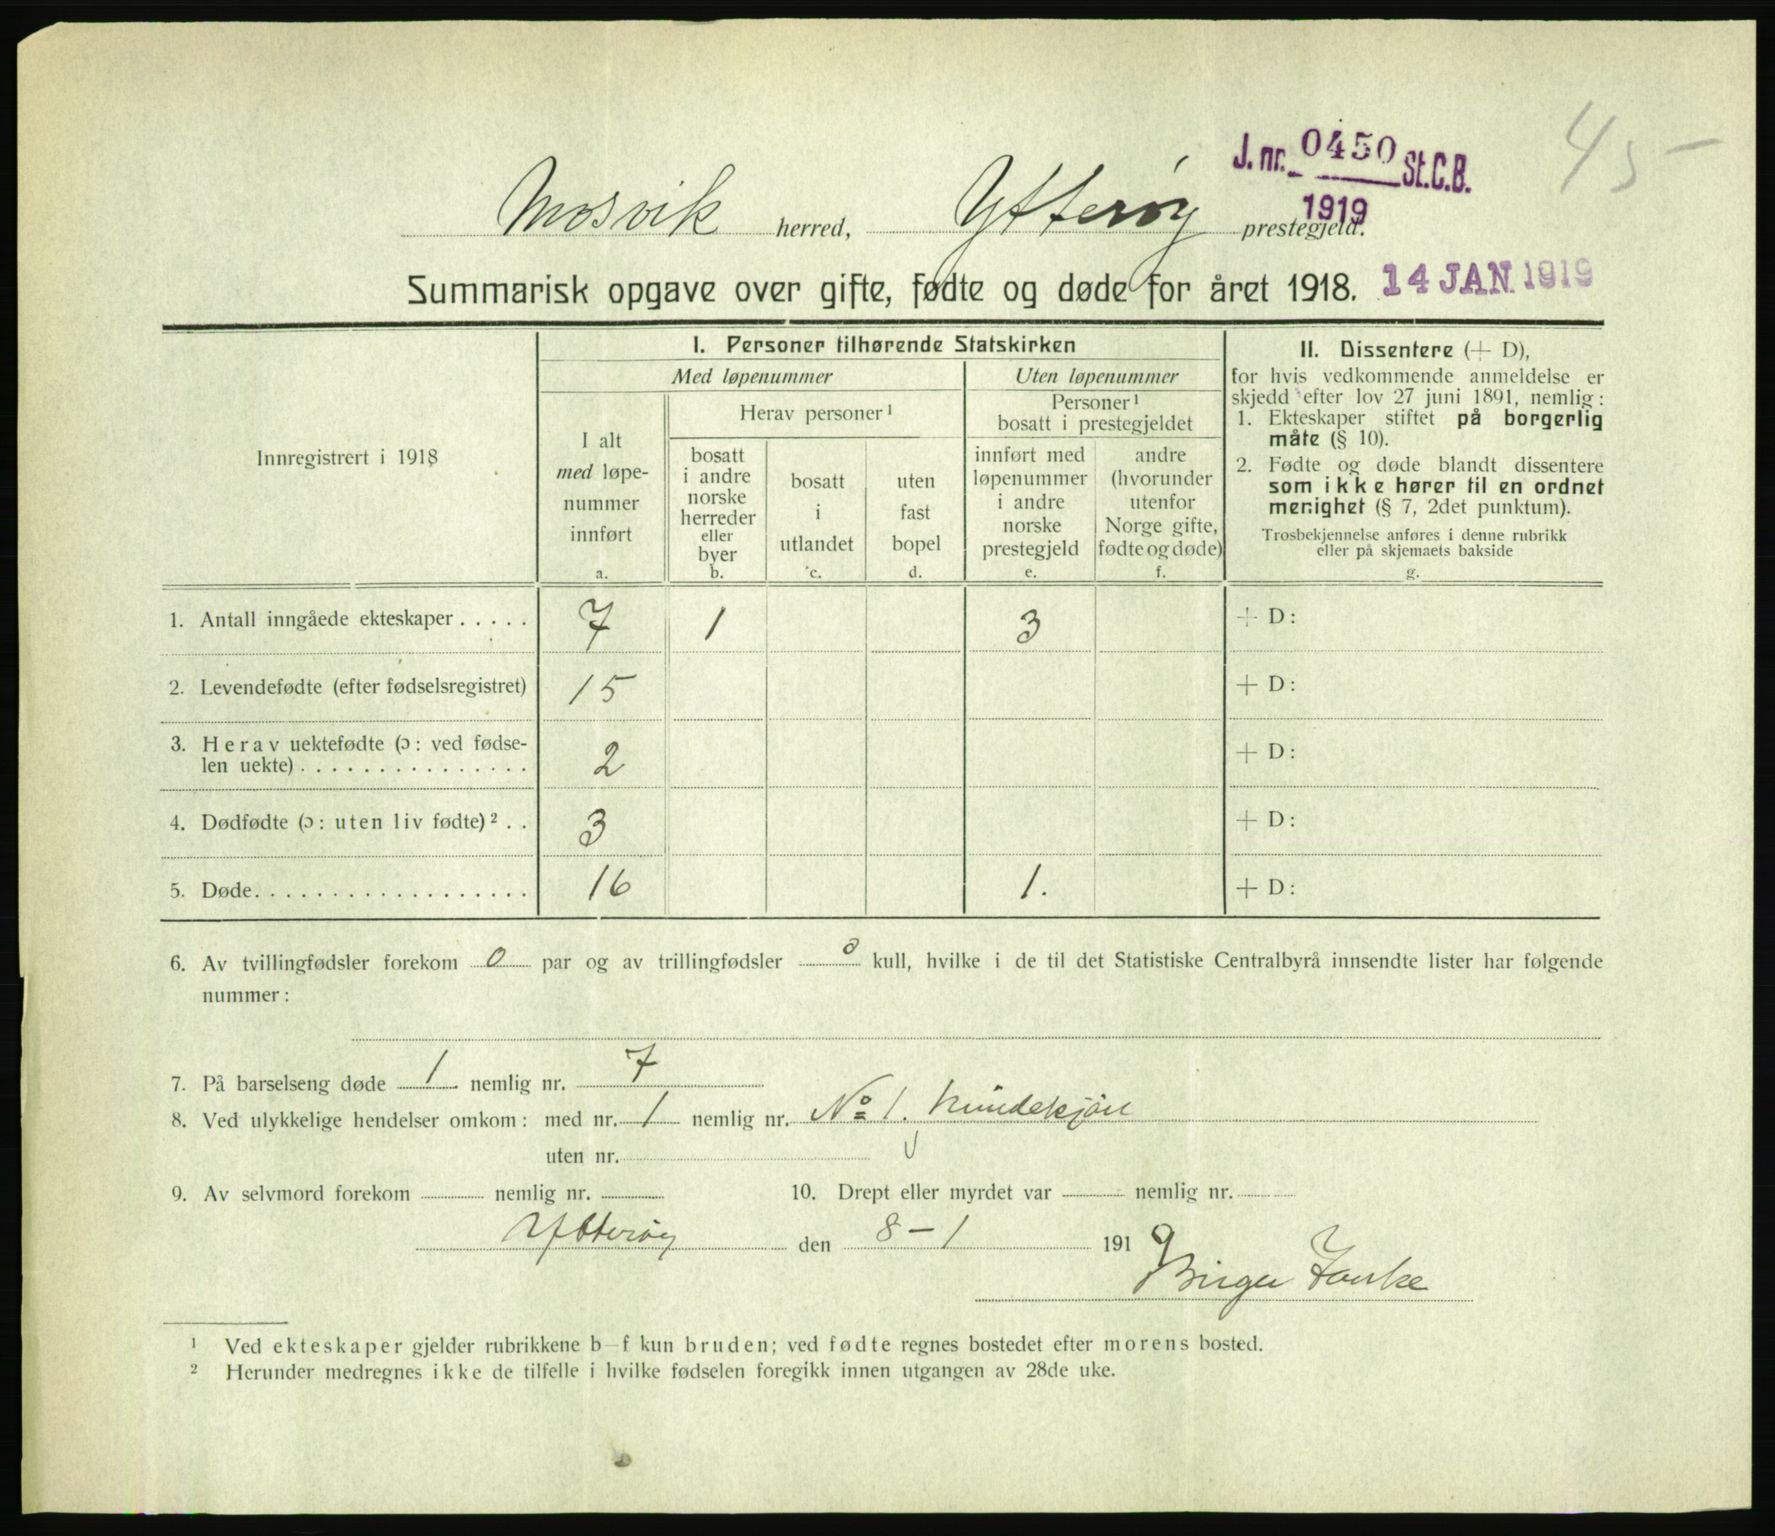 45-
J. nr. 0450 St.C.B.
1919
Mosvik herred, Ytterøy prestegjeld.
Summarisk opgave over gifte, fødte og døde for året 1918. 14 JAN 1919
Innregistrert i 1918
I. Personer tilhørende Statskirken
Med løpenummer
Uten løpenummer
I alt
med løpe-
nummer
innført
a.
Herav personer¹
bosatt
i andre
norske
herreder
eller
byer
b.
bosatt
i
utlandet
c.
uten
fast
bopel
d.
Personer¹
bosatt i prestegjeldet
innført med
løpenummer
i andre
norske
prestegjeld
e.
andre
(hvorunder
utenfor
Norge gifte,
fødte og døde)
f.
II. Dissentere (+ D),
for hvis vedkommende anmeldelse er
skjedd efter lov 27 juni 1891, nemlig:
1. Ekteskaper stiftet på borgerlig
måte (§ 10).
2. Fødte og døde blandt dissentere
som ikke hører til en ordnet
menighet (§ 7, 2det punktum).
Trosbekjennelse anføres i denne rubrikk
eller på skjemaets bakside
g.
1. Antall inngåede ekteskaper . . . . . 7 1 3 + D:
2. Levendefødte (efter fødselsregistret) 15 + D:
3. Herav uektefødte (ɔ: ved fødse-
len uekte) . . . . . . . . . . . . . . . 2 + D:
4. Dødfødte (ɔ: uten liv fødte)² . . 3 + D:
5. Døde. . . . . . . . . . . . . . . . . . 16 1. + D:
6. Av tvillingfødsler forekom 0 par og av trillingfødsler 0 kull, hvilke i de til det Statistiske Centralbyrå innsendte lister har følgende
nummer:
7. På barselseng døde 1 nemlig nr. 7
8. Ved ulykkelige hendelser omkom: med nr. 1 nemlig nr. No 1.
uten nr.
9. Av selvmord forekom nemlig nr. 10. Drept eller myrdet var nemlig nr.
Ytterøy den 8-1 1919
Birger
¹ Ved ekteskaper gjelder rubrikkene b—f kun bruden; ved fødte regnes bostedet efter morens bosted.
² Herunder medregnes ikke de tilfelle i hvilke fødselen foregikk innen utgangen av 28de uke.